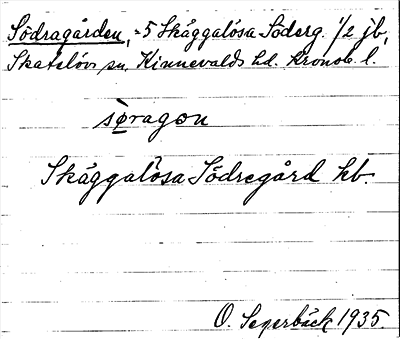 Södragården, =5 Skäggalösa Söderg. 1/2 jb,
Skatelövs sn, Kinnevalds hd. Kronob. l.
sø̀ragon
Skäggalösa Södregård kb.
O. Segerbäck 1935.